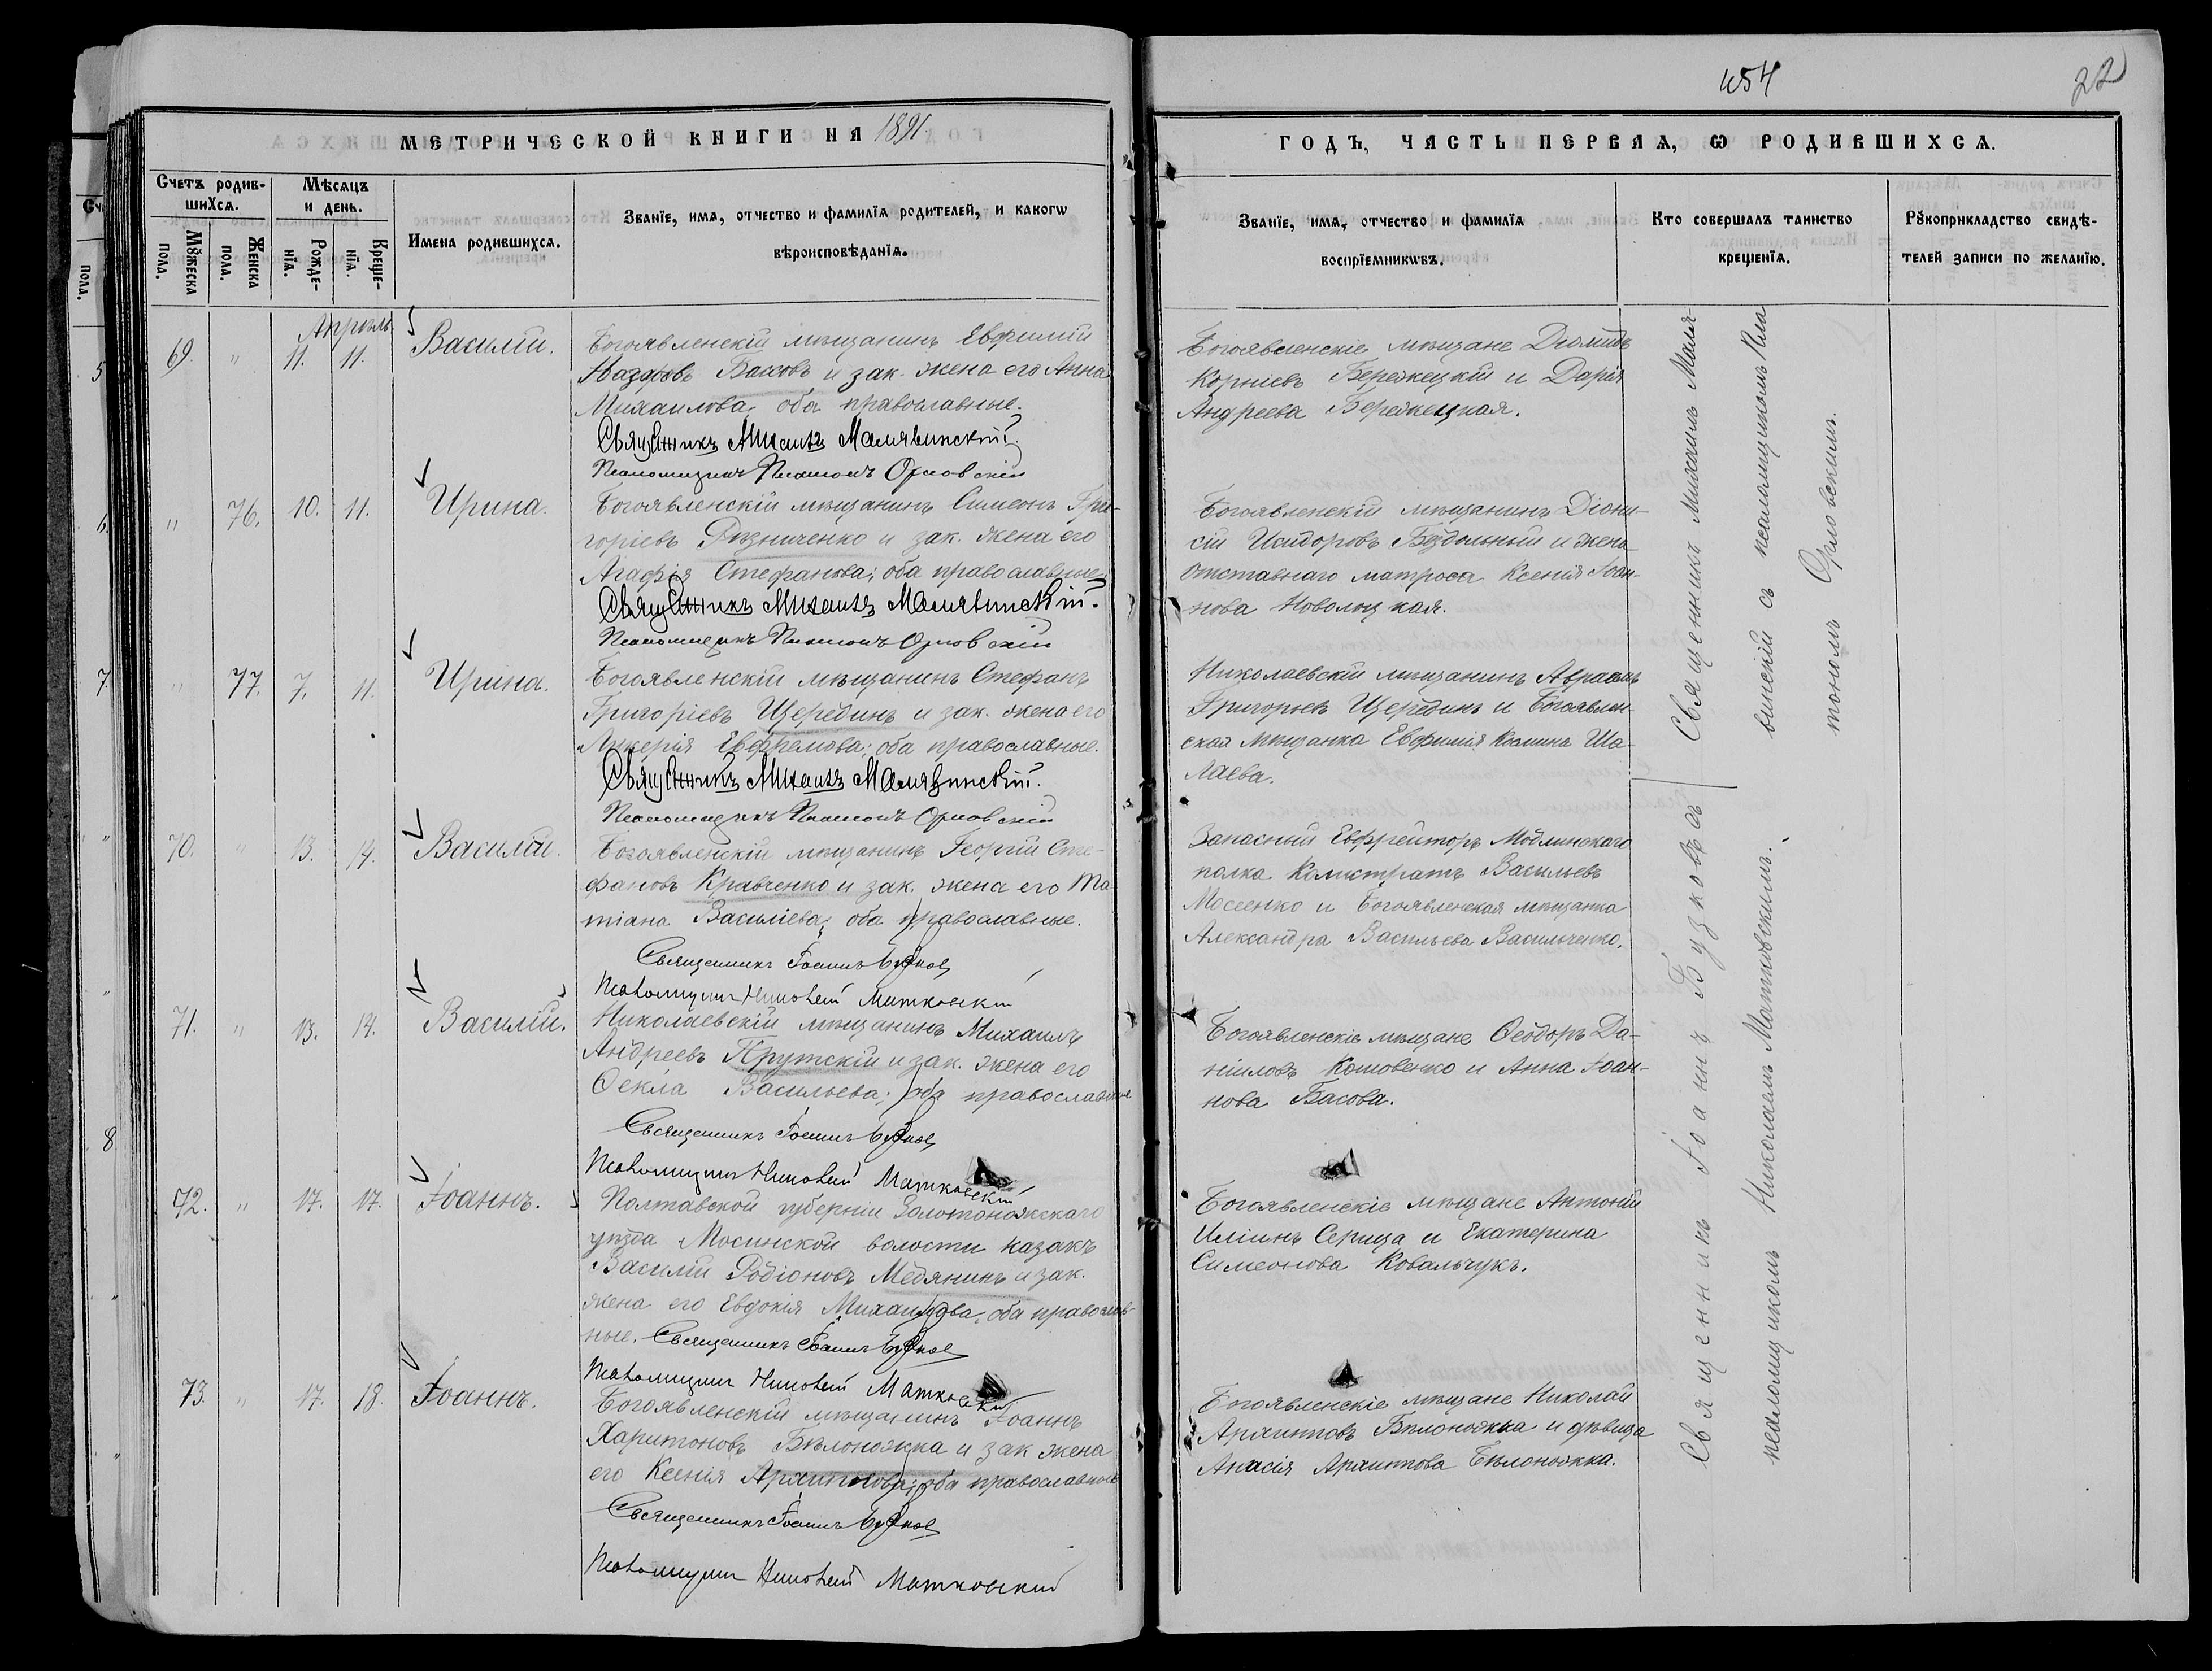 454
22
МЕТРИЧЕСКОЙ КНИГИ НА 1891
ГОДЪ, ЧАСТЬ ПЕРВАЯ, Ѡ РОДИВШИХСѦ.
Счетъ родив-
шихсѧ.
Мѣсяцъ
и день.
Имена родившихсѧ.
Званїе, имѧ, отчество и фамилїѧ родителей, и какогѡ
вѣроисповѣданїѧ.
Мꙋжеска
пола.
Женска
пола.
Рожде-
нїѧ.
Креще-
нїѧ.
Званїе, имѧ, отчество и фамилїѧ
воспрїемникѡвъ.
Кто совершалъ таинство
крещенїѧ.
Рꙋкоприкладство свидѣ-
телей записи по желанїю.
Апрѣль
69. " 11. 11. Василій.
Богоявленскій мѣщанинъ Евфимій
Назаровъ Бассовъ и зак. жена его Анна
Михаилова; оба православные.
Священникъ Михаилъ Малявинскій.
Псаломщикъ Платонъ Орловскій
Богоявленскіе мѣщане Діомидъ
Корніевъ Бережецкій и Дарія
Андреева Бережецкая.
" 76. 10. 11. Ирина.
Богоявленскій мѣщанинъ Симеонъ Гри-
горіевъ Рѣзниченко и зак. жена его
Агафія Стефанова; оба православные.
Священникъ Михаилъ Малявинскій.
Псаломщикъ Платонъ Орловскій
Богоявленскій мѣщанинъ Діони-
сій Исидоровъ Бездольный и жена
отставнаго матроса Ксенія Іоан-
нова Новолоцкая.
" 77. 7. 11. Ирина.
Богоявленскій мѣщанинъ Стефанъ
Григоріевъ Щерединъ и зак. жена его
Лукерія Евфремова; оба православные.
Священникъ Михаилъ Малявинскій.
Псаломщикъ Платонъ Орловскій
Николаевскій мѣщанинъ Авраамъ
Григорьевъ Щерединъ и Богоявлен-
ская мѣщанка Евфимія Космина Ша-
лаева.
Священникъ Михаилъ Маля-
винскій съ псаломщикомъ Пла
тономъ Орловскимъ.
70. " 13. 14. Василій.
Богоявленскій мѣщанинъ Георгій Сте-
фановъ Кравченко и зак. жена его Та
тіана Василіева; оба православные.
Священникъ Іоаннъ Бузковъ
Псаломщикъ Николай Матковскій
Запасный Евфрейторъ Модлинскаго
полка Калистратъ Васильевъ
Мосеенко и Богоявленская мѣщанка
Александра Васильева Васильченко.
71. " 13. 14. Василій.
Николаевскій мѣщанинъ Михаилъ
Андреевъ Прутскій и зак. жена его
Ѳекла Васильева; оба православные
Священникъ Іоаннъ Бузковъ
Псаломщикъ Николай Матковскій
Богоявленскіе мѣщане Ѳеодоръ Да-
ніиловъ Кошовенко и Анна Іоан-
нова Басова.
72. " 17. 17. Іоаннъ.
Полтавской губерніи Золотоножскаго
уѣзда Мосинской волости казакъ
Василій Родіоновъ Медянинъ и зак.
жена его Евдокія Михаилова, оба православ-
ные. Священникъ Іоаннъ Бузковъ
Псаломщикъ Николай Матковскій
Богоявленскіе мѣщане Антоній
Иліинъ Серица и Екатерина
Симеонова Ковальчукъ.
73. " 17. 18. Іоаннъ.
Богоявленскій мѣщанинъ Іоаннъ
Харитоновъ Бѣлоножка и зак жена
его Ксенія Архиппова; оба православные
Священникъ Іоаннъ Бузковъ
Псаломщикъ Николай Матковскій
Богоявленскіе мѣщане Николай
Архипповъ Бѣлоножка и дѣвица
Анасія Архиппова Бѣлоножка.
Священникъ Іоаннъ Бузковъ съ
псаломщикомъ Николаемъ Матковскимъ.